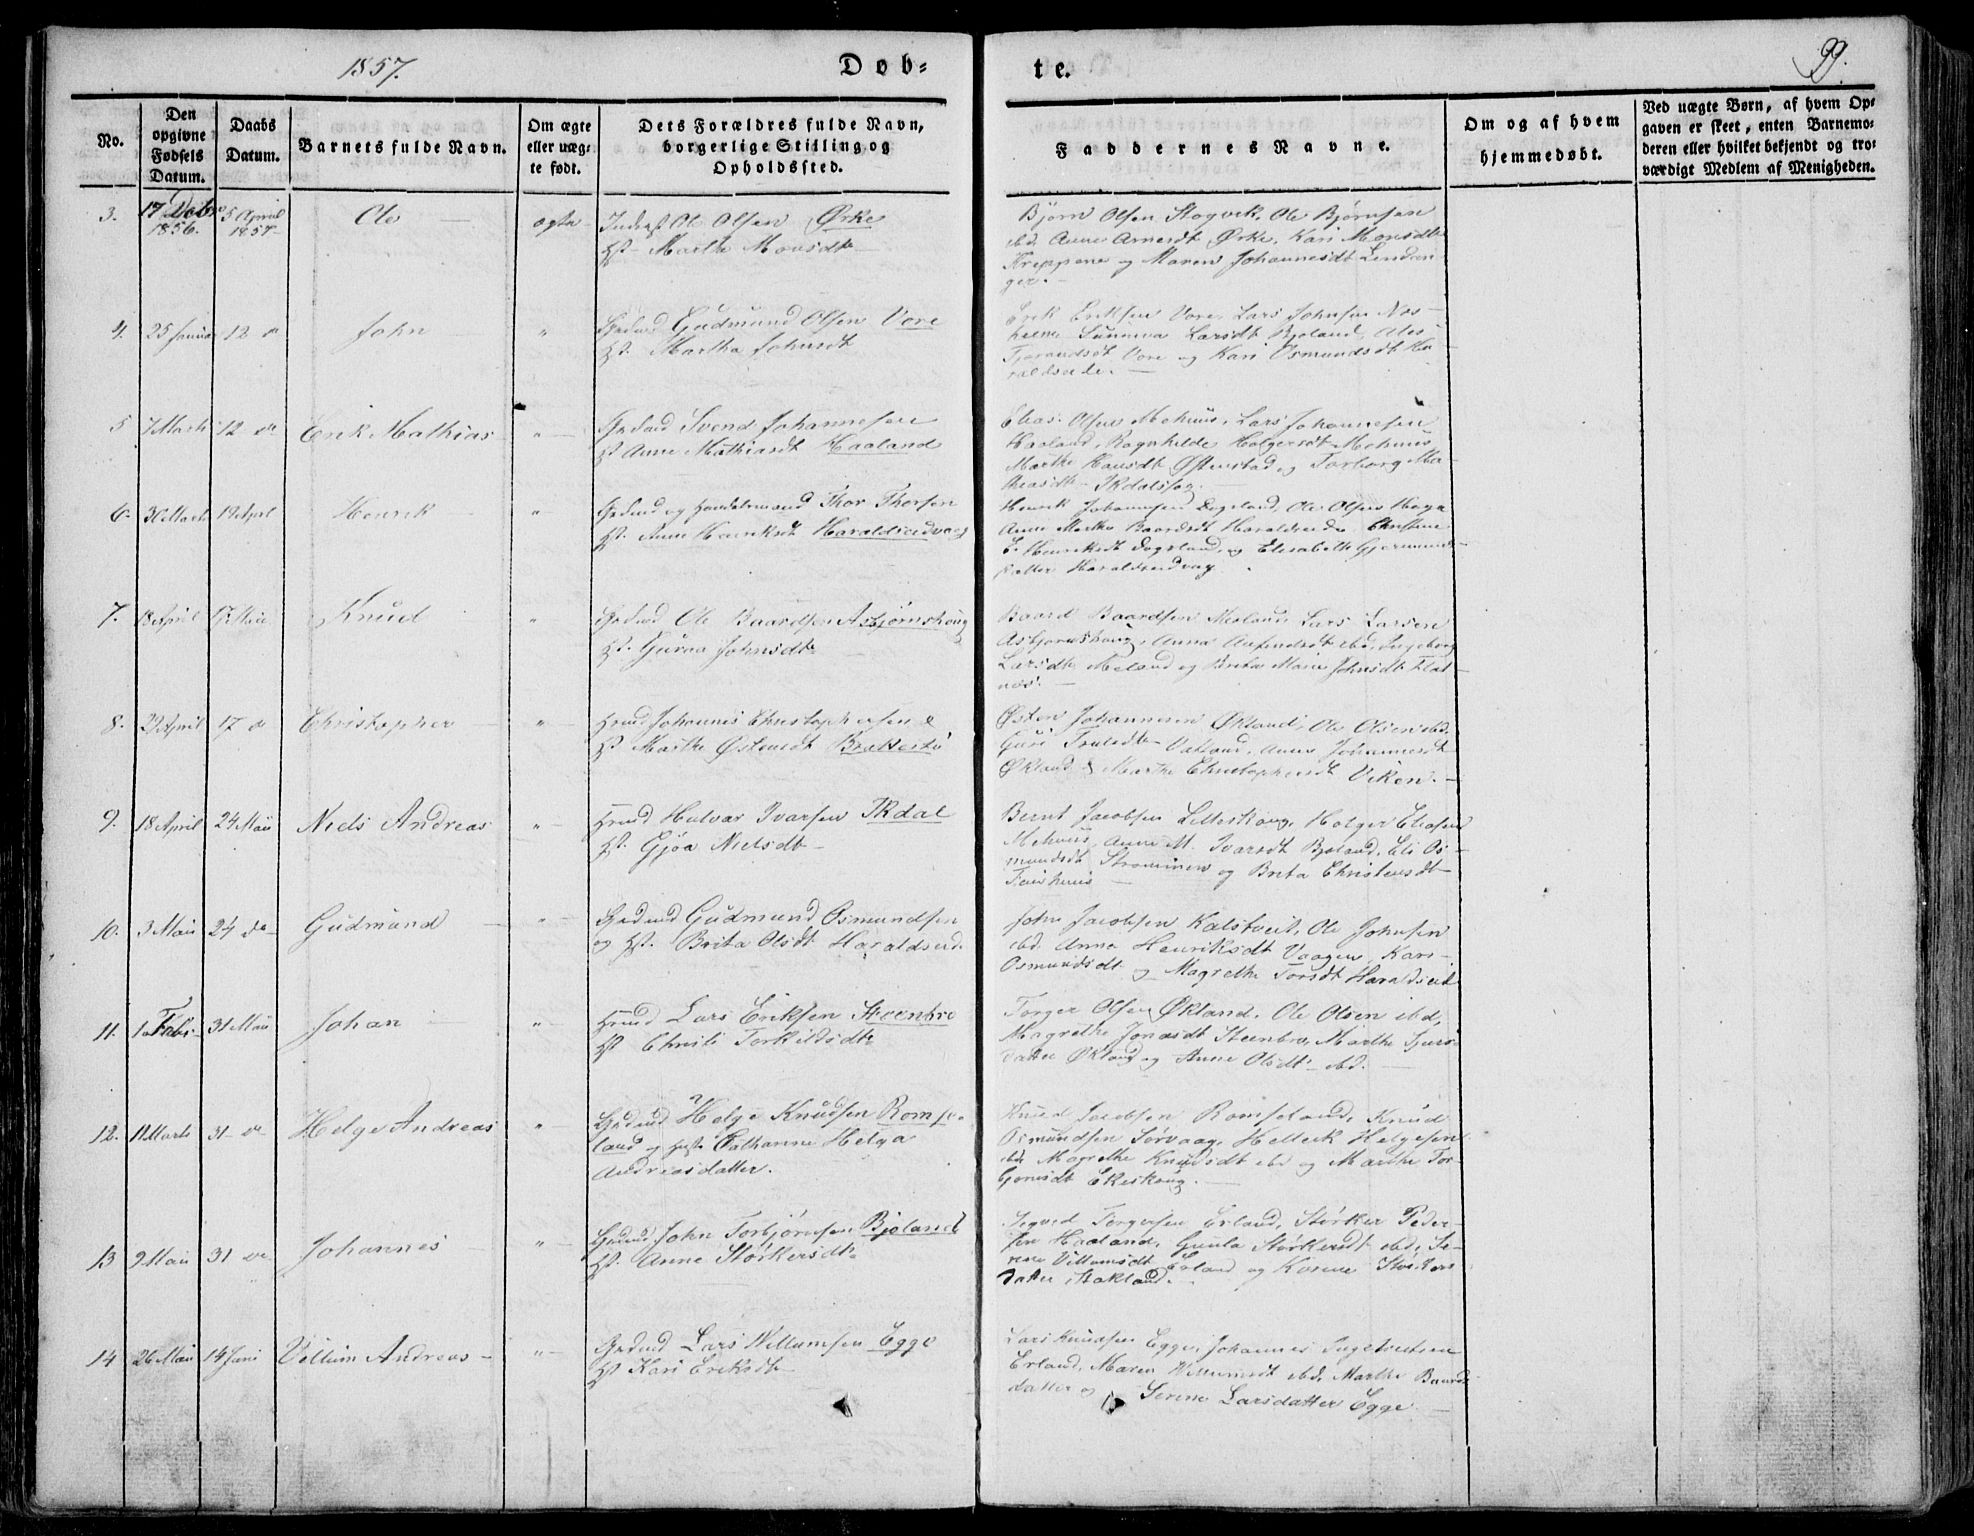 1857.
Døb-
te.
99.
No.
Den
opgivne
Fødsels
Datum.
Daabs
Datum.
Barnets fulde Navn.
Om ægte
eller uæg-
te født.
Dets Forældres fulde Navn,
borgerlige Stilling og
Opholdssted.
Faddernes Navne.
Om og af hvem
hjemmedøbt.
Ved uægte Børn, af hvem Op-
gaven er skeet, enten Barnemo-
deren eller hvilket bekjendt og tro-
værdigt Medlem af Menigheden.
3. 17 Octbr 5 April Ole ægte Inderst Ole Olsen Ørke
1856. 1857 Hst Marthe Monsdtr
Bjørn Olsen Stogvik, Ole Bjørnsen
ibd. Anne Arnesdt Ørke, Kari Monsdtr
Kreppene og Maren Johannesdt Lendin
ger.
4. 25 Januar 12 do John " Grdmd Gudmund Olsen Vore
Hst. Martha Johnsdt
Erik Eriksen Vore, Lars Johnsen Nes-
heim Sunniva Larsdt Bjoland,
Vore og Kari Osmundsdt Ha-
raldseide.
5 7 Marts 12 do Erik Mathias " Grdmd Svend Johannesen
Hst Anne Mathiasdt Haaland
Elias Olsen Mehuus, Lars Johannesen
Haaland, Ragnhilde Holgersdt Mehuus
Marthe Hansdt Østenstad, og Torborg Ma-
theasdt
6. 30 Marts 19 Apri Henrik " Grdmd og Handelsmand Thor Thorsen
Hst. Anne Henriksdt Haraldseidvaag
Henrik Johannesen Dogsland, Ole Olsen Hoga
Anne Marthe Baardsdt Haraldseide Christine
E. Henriksdt Dogsland, og Elisabeth Gjermunds-
datter Haraldseidvaag.
7. 18 April 17 Maii Knud " Grdmd Ole Baardsen Asbjørnshoug
Hst. Guroa Johnsdtr
Baard Baardsen Meland Lars Larsen
Asbjørnshoug, Anna Aufindsdt ibd., Ingeborg
Larsdtr Meland og Brita Marie Johnsdt Flat-
næs.
8. 29 April 17 do Christopher " Hmd Johannes Christophersen
Hst Marthe Østensdt Brattestø
Østen Johannesen Økland, Ole Olsen ibd.
Guri Trulsdtr Vatland, Anna Johannesdt
Økland & Marthe Christophersdt Viken.
9. 18 April 24 Maii Niels Andreas " Hmd Halvar Ivarsen Ikdal
Hst. Gjøa Nielsdt
Bernt Jacobsen Litleskoug, Holger Eliasen
Mehuus, Anne M. Ivarsdt Bjoland, Eli Os-
mundsdt Strømmen og Brita Christensdt
10. 3 Maii 24 do Gudmund " Grdmd Gudmund Osmundsen
og Hst. Brita Olsdt Haraldseid
John Jacobsen Kalstveit, Ole Johnsen
ibd. Anna Henriksdt Vaagen, Kari
Osmundsdt og Magrethe Torsdt Haraldseid
11. 10 Febr 31 Maii Johan " Hmd Lars Eriksen Steenbro
Hst Christi Torkildsdtr
Torger Olsen Økland, Ole Olsen ibd,
Magrethe Jonasdt Steenbro, Marthe Sjurs-
datter Økland og Anne Olsdt ibd.
12. 11 Marts 31 do Helge Andreas " Grdmd Helge Knudsen Romse-
land og Hst Cathanne Helga
Andreasdatter.
Knud Jacobsen Romseland, Knud
Osmundsen Sørvaag, Helleik Helgesen
ibd. Magrethe Knudsdt ibd og Marthe Tor-
Ekeskoug.
13 9 Maii 31 do Johannes " Grdmd John Torbjørnsen Bjoland
Hst. Anne Størkersdtr
Sigved Torgersen Erland, Størker Peder-
sen Haaland, Gunla Størkersdt ibd., Se-
rine Villumsdt Erland og Karine Størkers
datter Stakland.
14 26 Maii 14 Juni Villum Andreas " Grdmd Lars Willumsen Egge
Hst Kari Eriksdtr
Lars Knudsen Egge, Johannes Ingebretsen
Erland, Maren Willumsdt ibd, Marthe Baards
datter og Serine Larsdatter Egge.